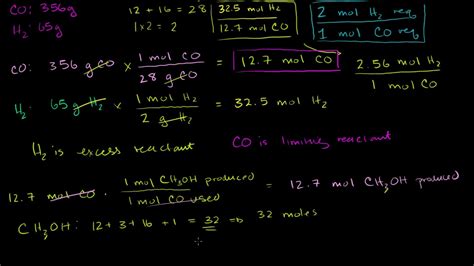 CO: 356g 12 + 16 = 28 32.5 mol H₂ / 12.7 mol CO 2 mol H₂ req / 1 mol CO req
H₂: 65g 1×2 = 2
CO: 356 g CO × 1 mol CO / 28 g CO = 12.7 mol CO 2.56 mol H₂ / 1 mol CO
H₂: 65 g H₂ × 1 mol H₂ / 2 g H₂ = 32.5 mol H₂
H₂ is excess reactant CO is limiting reactant
12.7 mol CO · 1 mol CH₃OH produced / 1 mol CO used = 12.7 mol CH₃OH produced
CH₃OH: 12+3+16+1 = 32 ⇒ 32 moles